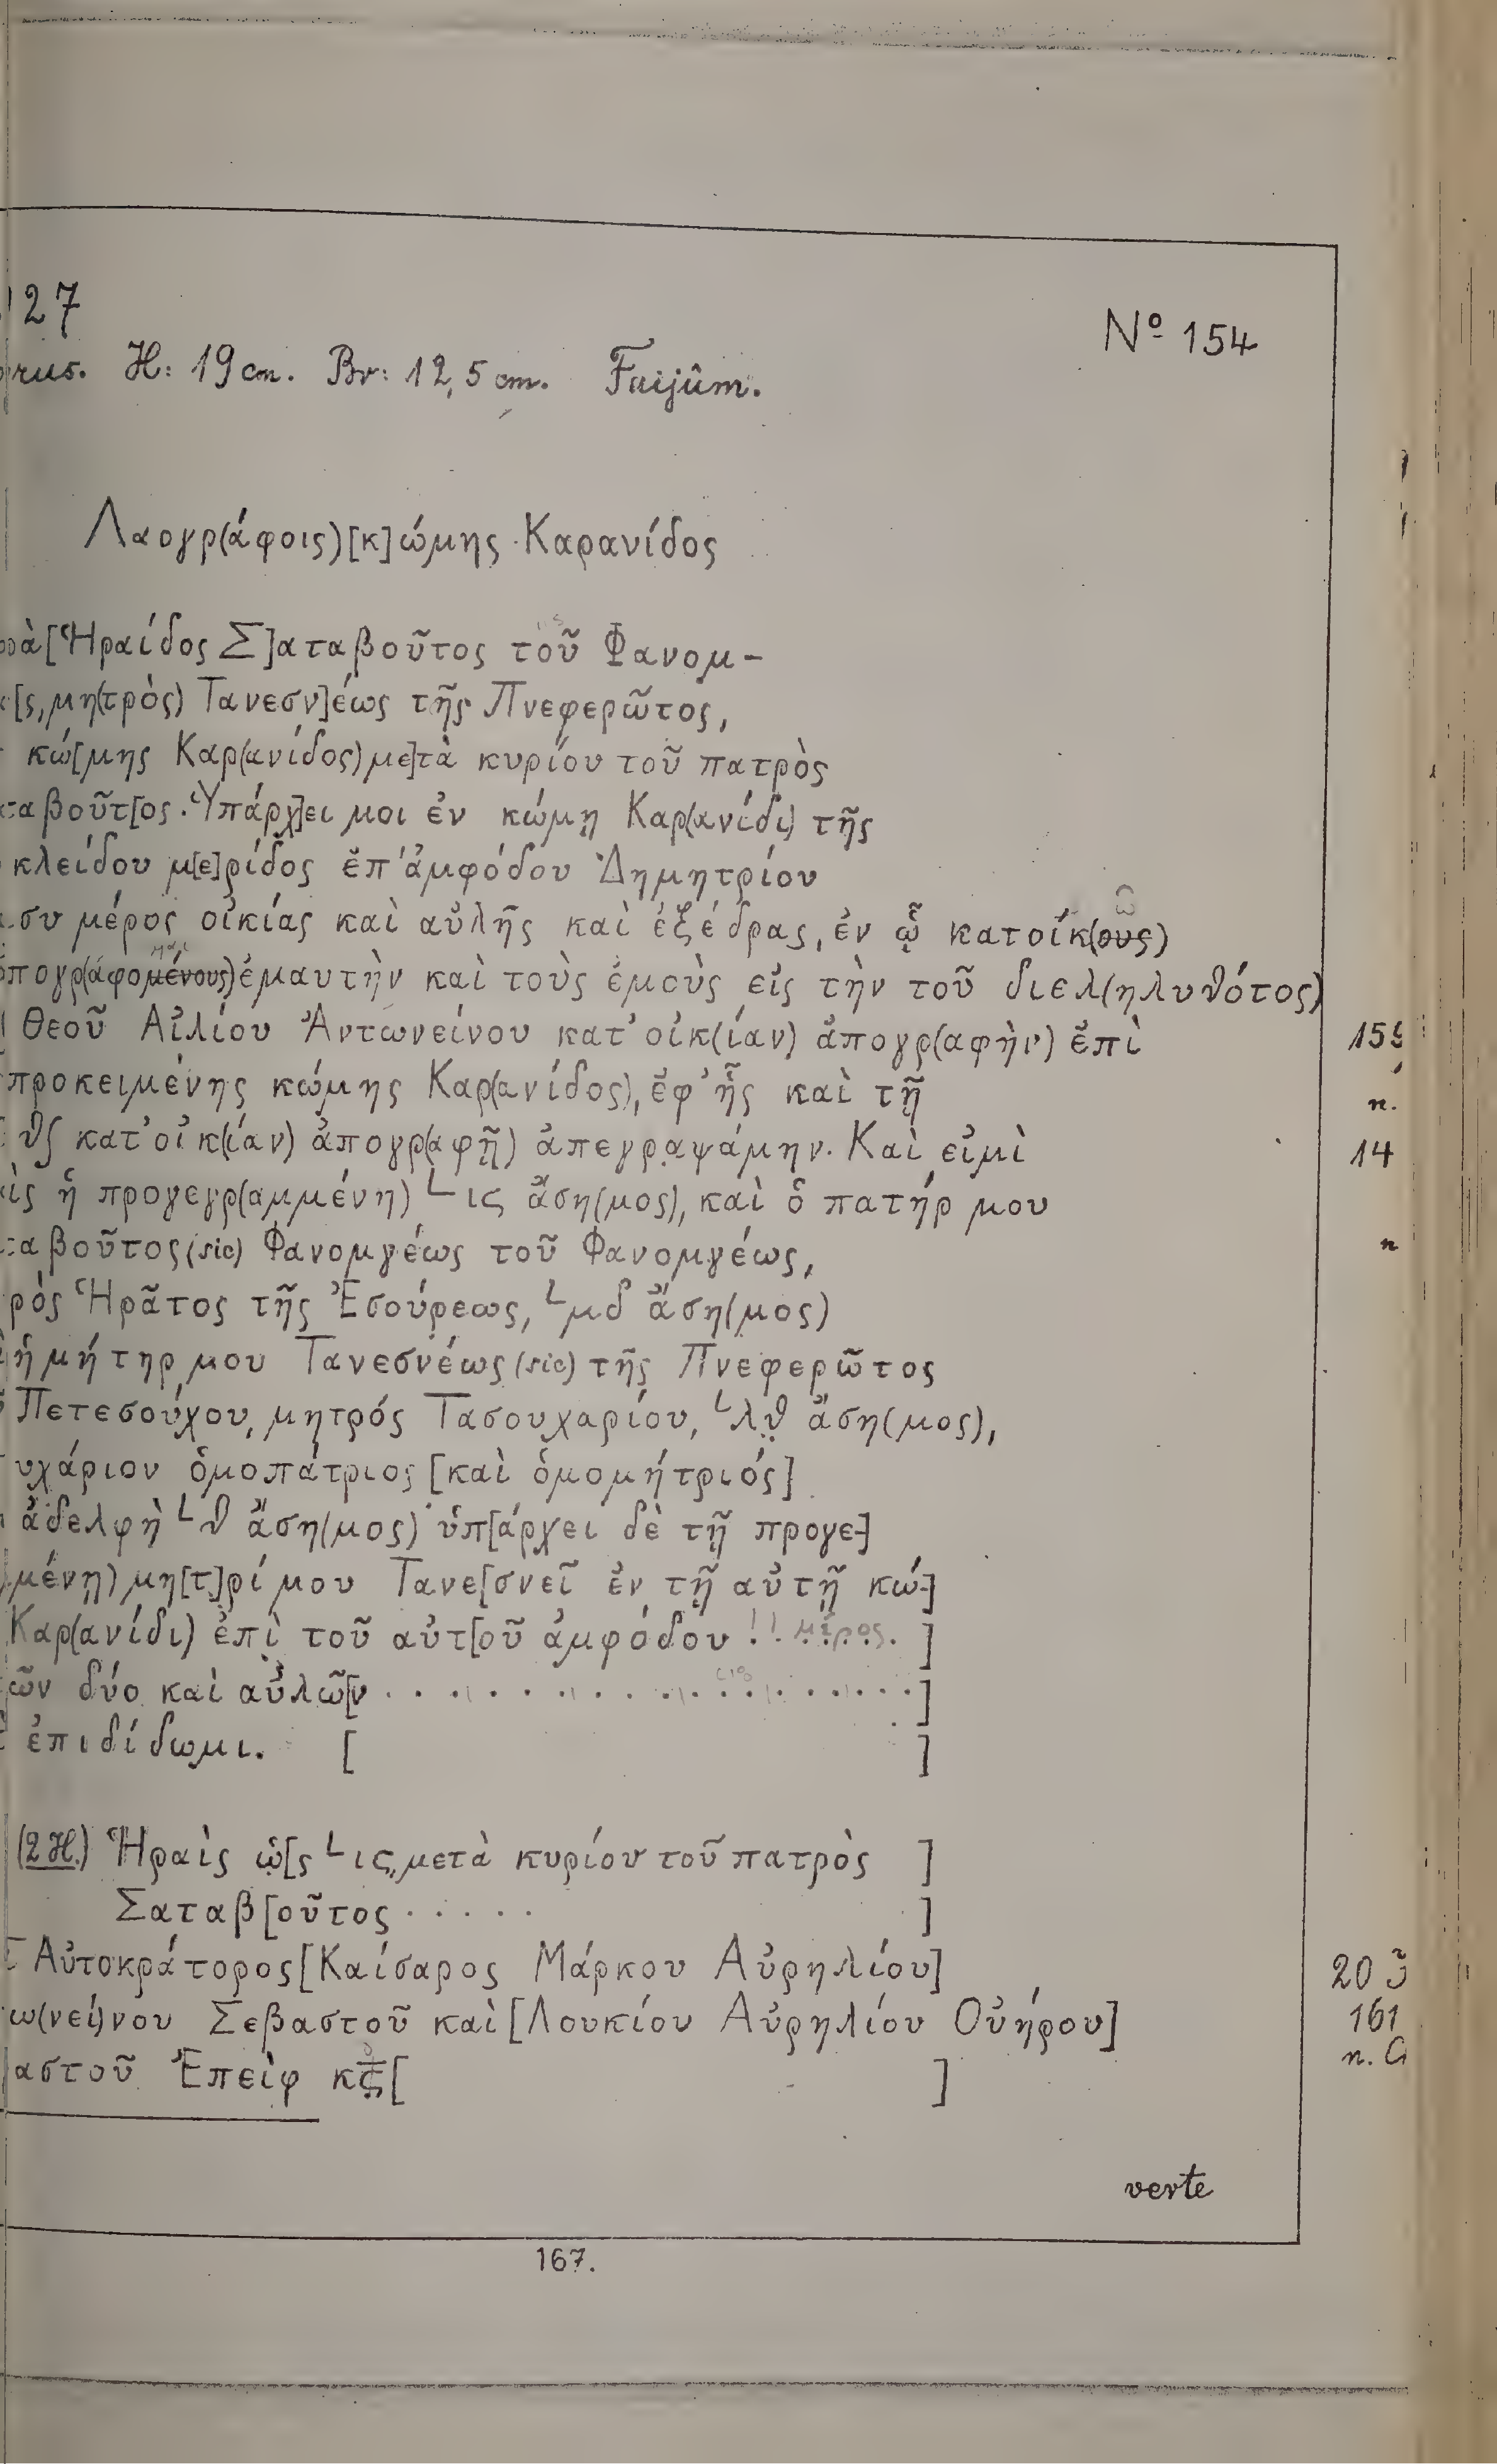 127
N° 154
H: 19 cm. Br: 12,5 cm. Faijûm.
Λαογρ(άφοις) [κ]ώμης Καρανίδος
[Ἡραίδος Σ]αταβοῦτος τοῦ Φανομ-
[ς, μη(τρὸς) Τανεσν]έως τῆς Πνεφερῶτος,
κώ[μης Καρ(ανίδος) με]τὰ κυρίου τοῦ πατρὸς
ταβοῦτ[ος. Ὑπάρχ]ει μοι ἐν κώμῃ Καρ(ανίδι) τῆς
κλείδου μ[ε]ρίδος ἐπ' ἀμφόδου Δημητρίου
συ μέρος οἰκίας καὶ αὐλῆς καὶ ἐξέδρας, ἐν ᾧ κατοίκ(ους)
πογρ(αφομένους) ἐμαυτὴν καὶ τοὺς ἐμοὺς εἰς τὴν τοῦ διελ(ηλυθότος)
Θεοῦ Αἰλίου Ἀντωνείνου κατ' οἰκ(ίαν) ἀπογρ(αφὴν) ἐπὶ
προκειμένης κώμης Καρ(ανίδος), ἐφ' ἧς καὶ τῇ
κατ' οἰκ(ίαν) ἀπογρ(αφῇ) ἀπεγραψάμην. Καὶ εἰμὶ 14
ὶς ἡ προγεγρ(αμμένη) └ ις ἄση(μος), καὶ ὁ πατήρ μου
ταβοῦτος (sic) Φανομγέως τοῦ Φανομγέως, n
ρὸς Ἡρᾶτος τῆς Ἐσούρεως, └ μδ ἄση(μος)
ἡ μήτηρ μου Τανεσνέως (sic) τῆς Πνεφερῶτος
Πετεσούχου, μητρός Τασουχαρίου, └ λθ ἄση(μος),
υχάριον ὁμοπάτριος [καὶ ὁμομήτριός]
ἀδελφὴ └ θ ἄση(μος) ὑπ[άρχει δὲ τῇ προγε-]
μένῃ) μη[τ]ρί μου Τανε[σνεῖ ἐν τῇ αὐτῇ κώ-]
Καρ(ανίδι) ἐπὶ τοῦ αὐτ[οῦ ἀμφόδου . . μέρος . ]
ῶν δύο καὶ αὐλῶ[ν . . . . . . . . . . . . . . . . ]
ἐπιδίδωμι. [ ]
(2 H.) Ἡραὶς ὡ[ς └ ις, μετὰ κυρίου τοῦ πατρὸς ]
Σαταβ[οῦτος . . . . . ]
Αὐτοκράτορος [Καίσαρος Μάρκου Αὐρηλίου] 20
ω(νεί)νου Σεβαστοῦ καὶ [Λουκίου Αὐρηλίου Οὐήρου] 161
αστοῦ Ἐπεὶφ κς [ ]
verte
167.